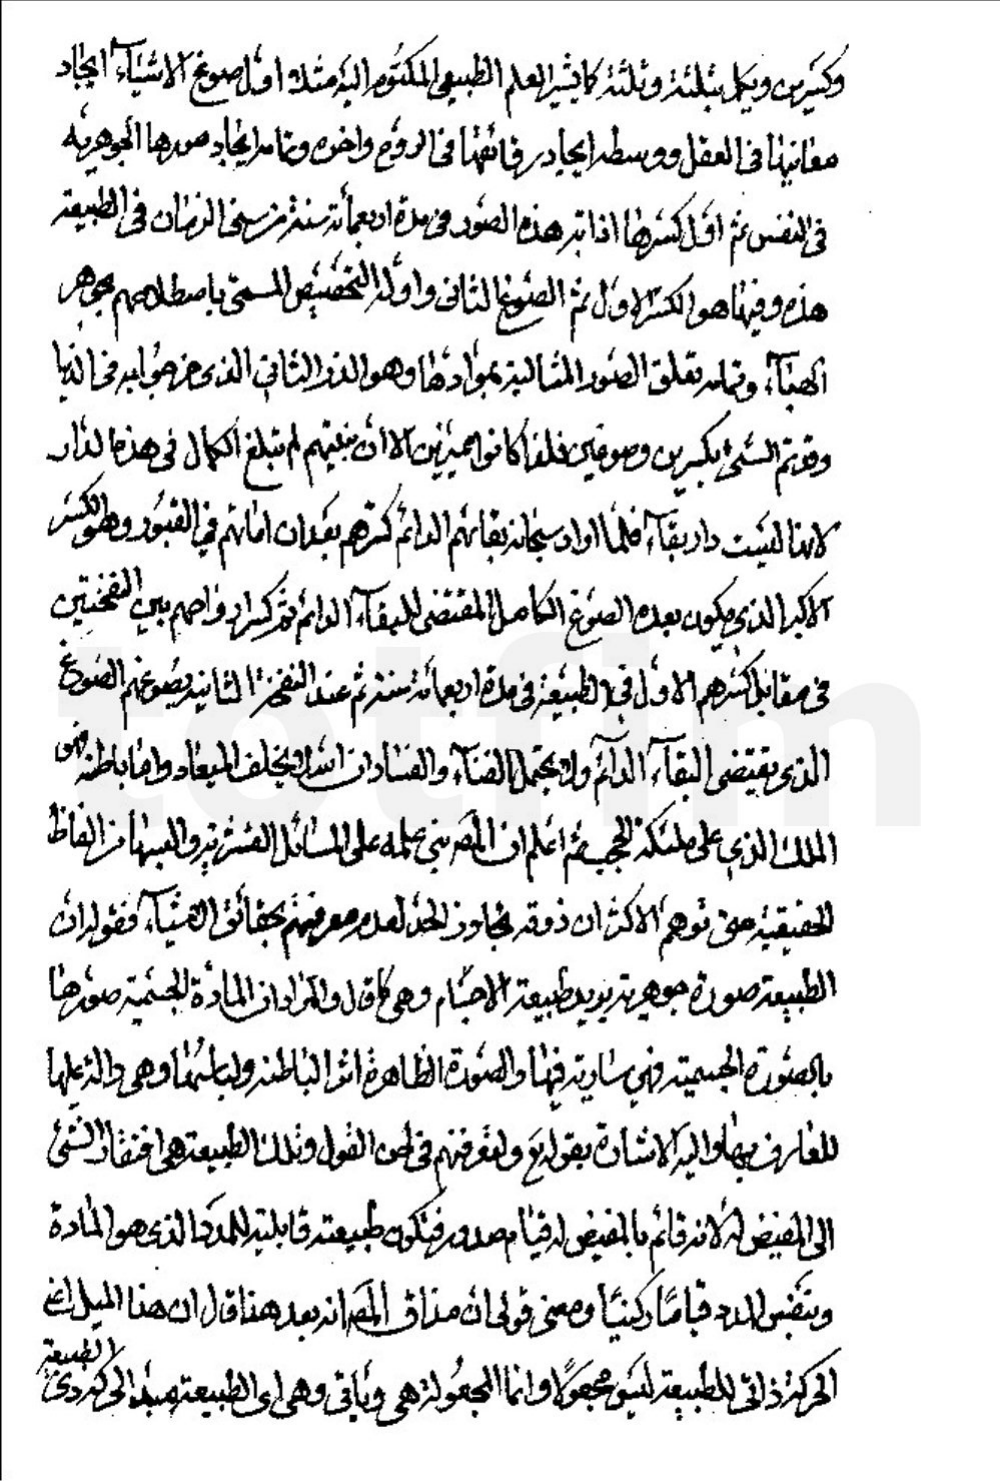 وكسرين ويكمل بثلثة وثلثة كما يشير العلم الطبيعي المكتوم اليه مثله اول صوغ الاشياء ايجاد
معانيها في العقل ووسطه ايجاد رقائقها في الروح واخره وتمامه ايجاد صورها الجوهرية
في النفس ثم اول كسرها اذابة هذه الصور في مدة اربعمائة سنة من سني الزمان في الطبيعة
هذه وفيها هو الكسر الاول ثم الصوغ الثاني واوله التخصيص المسمى باصطلاحهم بجوهر
الهباء وتمامه تعلق الصور المثالية بموادها وهو الذر الثاني الذي خرجوا به في الدنيا
وقد تم الشئ بكسرين وصوغين فلذا كانوا مميزين الا ان بنيتهم لم تبلغ الكمال في هذه الدار
لانها ليست دار بقاء فلما اراد سبحانه بقائهم الدائم كسرهم بعد ان اماتهم في القبور وهو الكسر
الاكبر الذي يكون بعده الصوغ الكامل المقتضي للبقاء الدائم فتكسر ارواحهم بين النفختين
في مقابل كسرهم الاول في الطبيعة في مدة اربعمائة سنة ثم عند النفخة الثانية يصوغهم الصوغ
الذي يقتضي البقاء الدائم ولا يحتمل الفناء والفساد ان الله لا يخلف الميعاد واما باطنه فهو
الملك الذي على ملئكة الحجب ثم اعلم ان المص بنى علمه على المسائل القشرية والبسها من الفاظ
الحقيقية حتى توهم الاكثر ان ذوقه تجاوز الحد لعدم معرفتهم بحقائق الاشياء فقوله ان
الطبيعة صورة جوهرية يريد طبيعة الاجسام وهي كما قال والمراد ان المادة الجسمية صورها
بالصورة الجسمية فهي سارية فيها والصورة الظاهرة اثر الباطنة ولباسها وهي دالة عليها
للعارف بها واليه الاشارة بقوله تع ولتعرفنهم في لحن القول وتلك الطبيعة هي افتقار الشئ
الى المفيض له لانه قائم بالمفيض له قيام صدور فتكون طبيعته قابليته للمدد الذي هو المادة
ويتقبس المدد قياما ركنيا ومعنى قولي ان مذاق المص انه بعد هذا قال ان هذا الميل اعني
الحركة ذاتي للطبيعة ليس مجعولا وانما المجعولة هي ويأتي وهي اي الطبيعة مبدء الحركة دي
الطبيعة